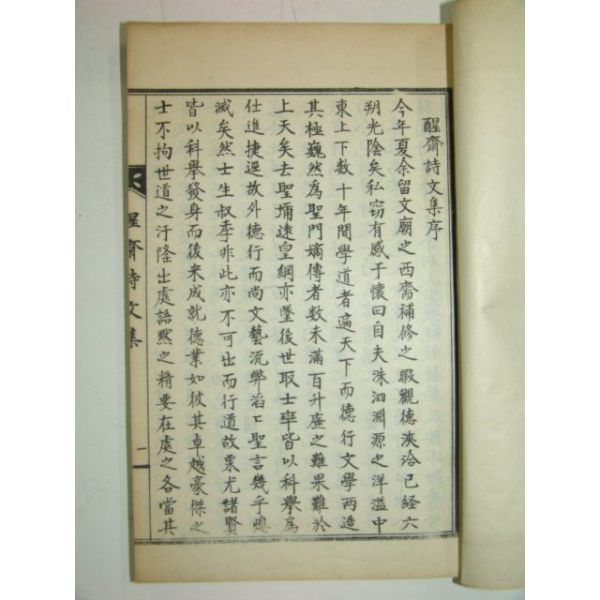 醒齋詩文集序
今年夏余留文廟之西齋補修之暇觀德浹洽已経六
朔光陰矣私窃有感于懷曰自夫洙泗淵源之洋溢中
東上下數十年間學道者遍天下而德行文學兩造
其極巍然為聖門嫡傳者數未滿百升廡之難果難於
上天矣去聖彌遠皇綱亦墜後世取士率皆以科擧為
仕進捷逕故外德行而尚文藝流弊滔〻聖言幾乎熄
滅矣然士生叔季非此亦不可出而行道故栗尤諸賢
皆以科擧發身而後来成就德業如彼其卓越豪傑之
士不拘世道之汙隆出處語默之精要在處之各當其
醒齋詩文集
一